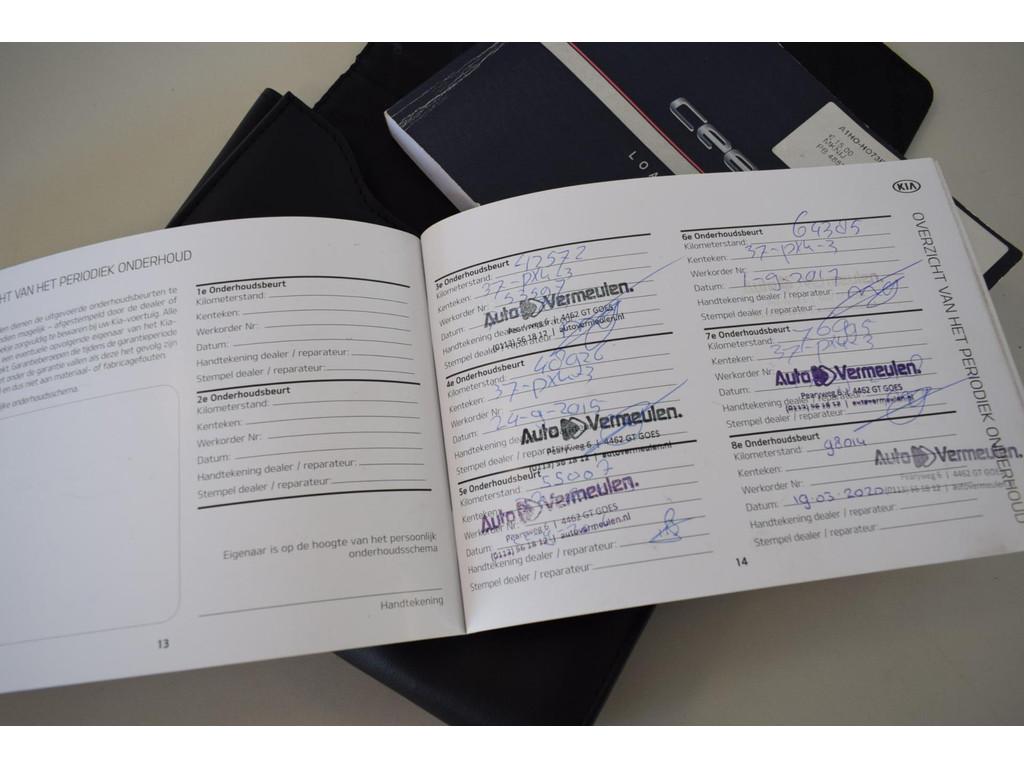 LO
A1HO-HO73
€ 15.00
KIA
HT VAN HET PERIODIEK ONDERHOUD
dienen de uitgevoerde onderhoudsbeurten te
mogelijk – afgestempeld door de dealer of
zorgvuldig te bewaren bij uw Kia-voertuig. Alle
een eventuele opvolgende eigenaar van het Kia-
Garantieberoepen die tijdens de garantieperiode
onder de garantie vallen als deze het gevolg zijn
en dus niet aan materiaal- of fabricagefouten.
onderhoudsschema.
1e Onderhoudsbeurt
Kilometerstand:
Kenteken:
Werkorder Nr:
Datum:
Handtekening dealer / reparateur:
Stempel dealer / reparateur:
2e Onderhoudsbeurt
Kilometerstand:
Kenteken:
Werkorder Nr:
Datum:
Handtekening dealer / reparateur:
Stempel dealer / reparateur:
Eigenaar is op de hoogte van het persoonlijk
onderhoudsschema
Handtekening
13
3e Onderhoudsbeurt
Kilometerstand:
Kenteken: 37-PX4-3
Werkorder Nr:
Datum:
Handtekening dealer
Stempel dealer
Auto Vermeulen.
Pearyweg 6 | 4462 GT GOES
(0113) 56 18 12 | autovermeulen.nl
4e Onderhoudsbeurt
Kilometerstand: 48926
Kenteken: 37-PX4-3
Werkorder Nr:
Datum: 24-9-2015
Handtekening
Stempel dealer / reparateur:
Auto Vermeulen.
Pearyweg 6 | 4462 GT GOES
(0113) 56 18 12 | autovermeulen.nl
5e Onderhoudsbeurt
Kilometerstand: 55007
Kenteken:
Werkorder Nr:
Datum:
Handtekening dealer / reparateur:
Stempel dealer / reparateur:
Auto Vermeulen.
Pearyweg 6 | 4462 GT GOES
(0113) 56 18 12 | autovermeulen.nl
6e Onderhoudsbeurt
Kilometerstand: 64385
Kenteken: 37-PX4-3
Werkorder Nr:
Datum: 1-9-2017
Handtekening dealer / reparateur:
Stempel dealer / reparateur:
7e Onderhoudsbeurt
Kilometerstand: 76915
Kenteken: 37-PX4-3
Werkorder Nr:
Datum:
Handtekening dealer / reparateur:
Stempel dealer / reparateur:
Auto Vermeulen.
Pearyweg 6 | 4462 GT GOES
(0113) 56 18 12 | autovermeulen.nl
8e Onderhoudsbeurt
Kilometerstand: 98014
Kenteken:
Werkorder Nr:
Datum: 19-03-2020
Handtekening dealer / reparateur:
Stempel dealer / reparateur:
Auto Vermeulen.
Pearyweg 6 | 4462 GT GOES
(0113) 56 18 12 | autovermeulen
14
OVERZICHT VAN HET PERIODIEK ONDERHOUD